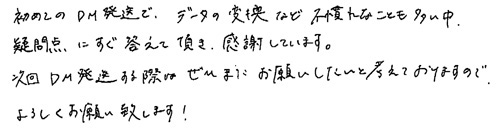 初めてのDM発送で、データの変換など不慣れなことも多い中、
疑問点にすぐ答えて頂き、感謝しています。
次回DM発送する際はぜひまたお願いしたいと考えておりますので、
よろしくお願い致します!